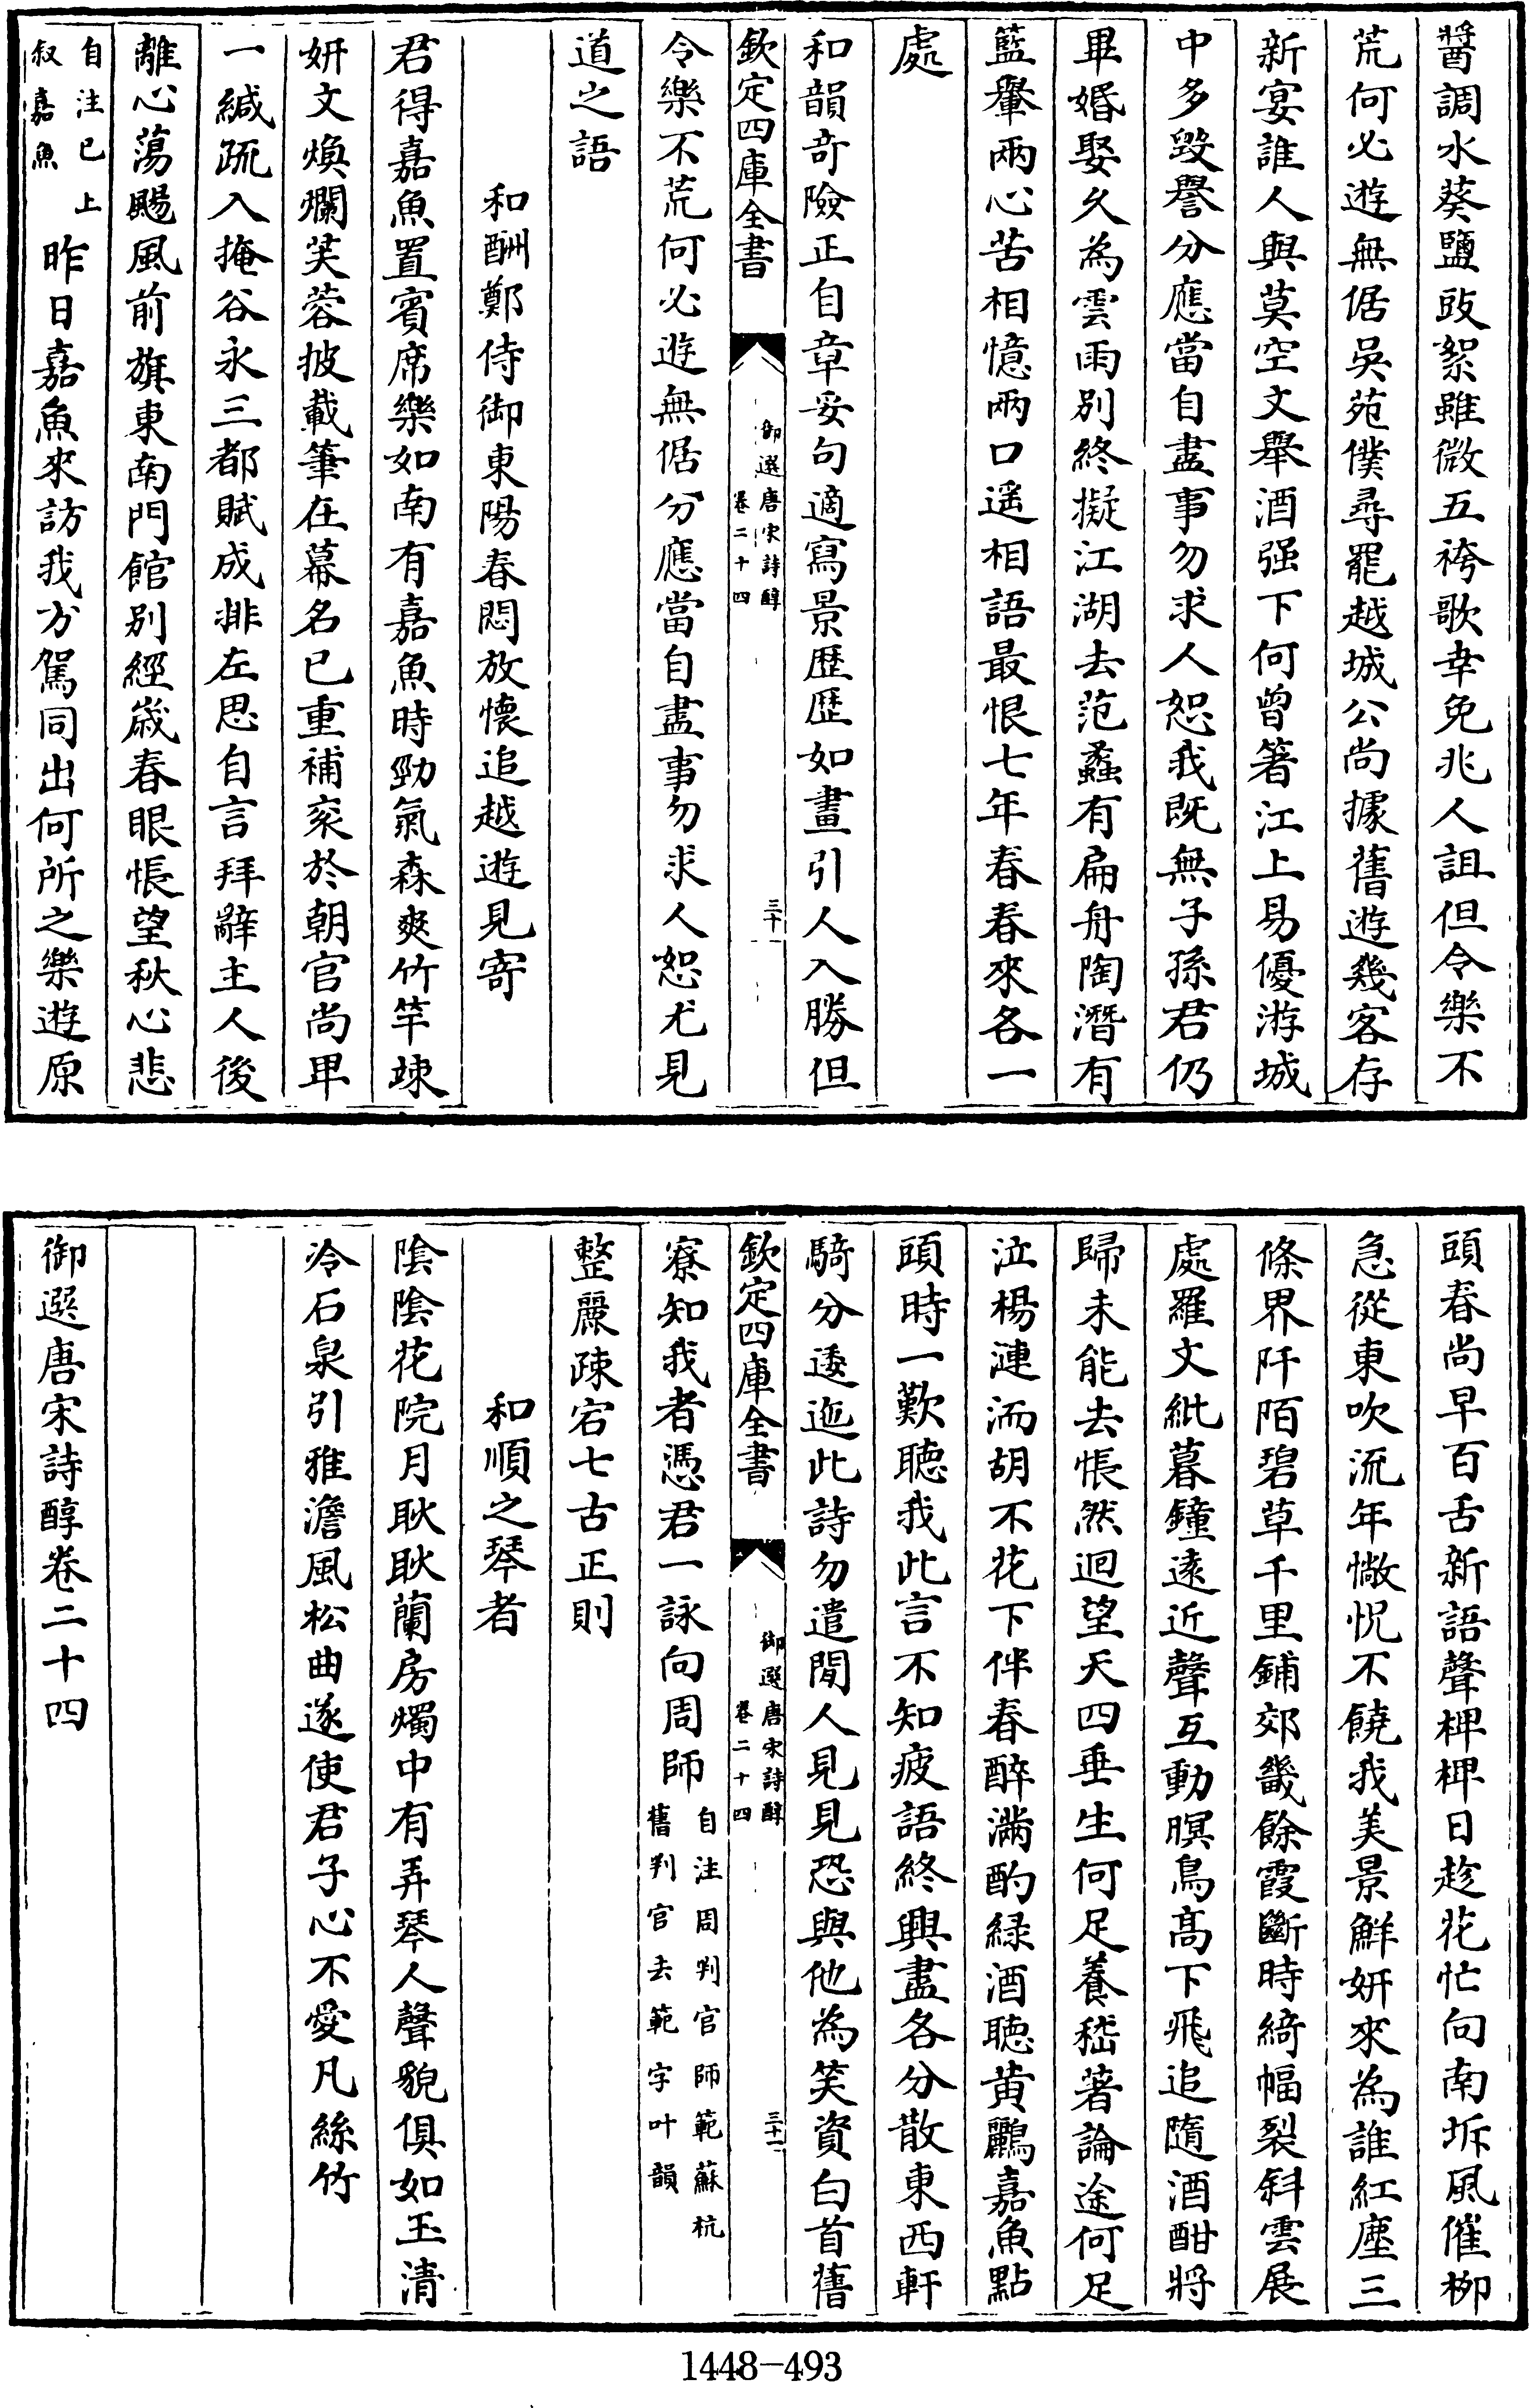 醤調水葵鹽豉絮雖微五袴歌幸免兆人詛但令樂不
荒何必遊無倨吳苑僕尋罷越城公尚據舊遊幾客存
新宴誰人與莫空文舉酒强下何曾箸江上易優游城
中多毀譽分應當自盡事勿求人恕我既無子孫君仍
畢婚娶久為雲雨別終擬江湖去范蠡有扁舟陶潛有
籃轝兩心苦相憶兩口遥相語最恨七年春春來各一
處
和韻奇險正自章妥句適寫景歴歴如畫引人入勝但
欽定四庫全書
御選唐宋詩醇
卷二十四
三十
令樂不荒何必遊無倨分應當自盡事勿求人恕尤見
道之語
和酬鄭侍御東陽春悶放懷追越遊見寄
君得嘉魚置賓席樂如南有嘉魚時勁氣森爽竹竿竦
妍文煥爛芙蓉披載筆在幕名已重補衮於朝官尚卑
一緘疏入掩谷永三都賦成排左思自言拜辭主人後
離心蕩颺風前旗東南門館別經歲春眼悵望秋心悲
自注已上
叙嘉魚
昨日嘉魚來訪我方駕同出何所之樂遊原
頭春尚早百舌新語聲椑椑日趁花忙向南坼風催柳
急從東吹流年慠怳不饒我美景鮮妍來為誰紅塵三
條界阡陌碧草千里鋪郊畿餘霞斷時綺幅裂斜雲展
處羅文紕暮鐘遠近聲互動暝鳥高下飛追隨酒酣將
歸未能去悵然迴望天四垂生何足養嵇著論途何足
泣楊漣洏胡不花下伴春醉滿酌綠酒聽黄鸝嘉魚點
頭時一歎聽我此言不知疲語終興盡各分散東西軒
騎分逶迤此詩勿遣閒人見見恐與他為笑資白首舊
欽定四庫全書
御選唐宋詩醇
卷二十四
三十一
寮知我者憑君一詠向周師
自注周判官師範蘇杭
舊判官去範字叶韻
整麗疎宕七古正則
和順之琴者
陰陰花院月耿耿蘭房燭中有弄琴人聲貌俱如玉清
泠石泉引雅澹風松曲遂使君子心不愛凡絲竹
御選唐宋詩醇卷二十四
1448-493